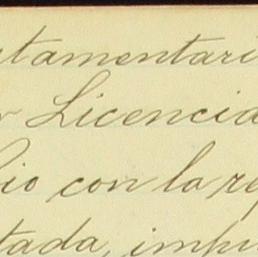 stamentari
r Licencia
io con la re
tada, impu